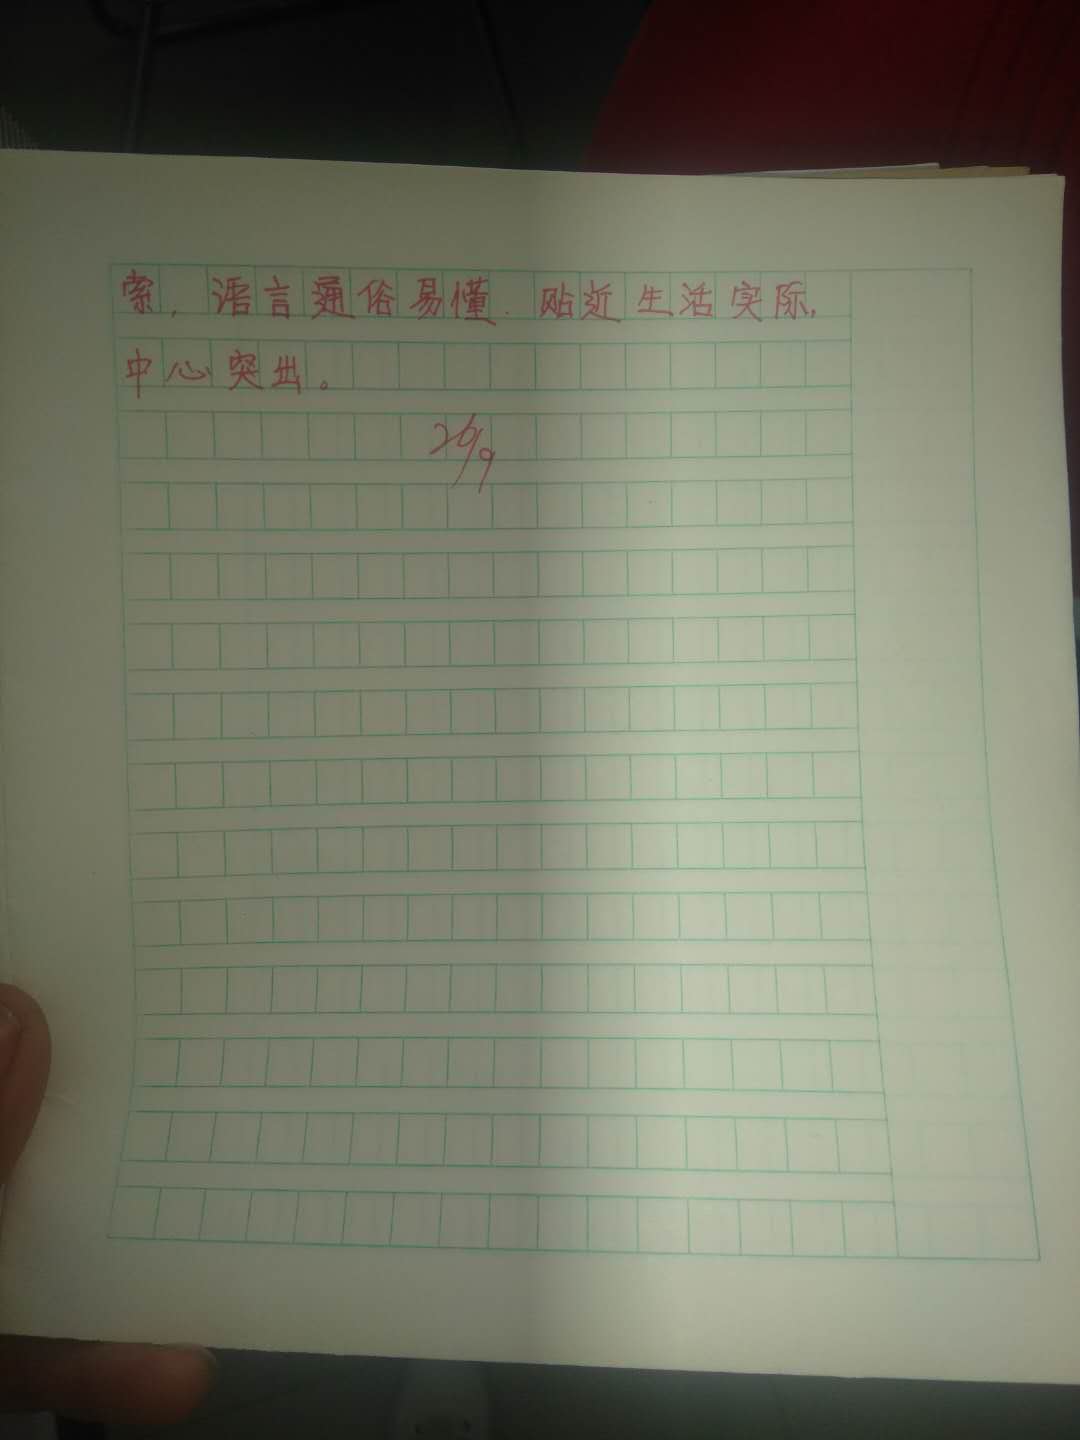 索,语言通俗易懂.贴近生活实际,
中心突出。
26/9